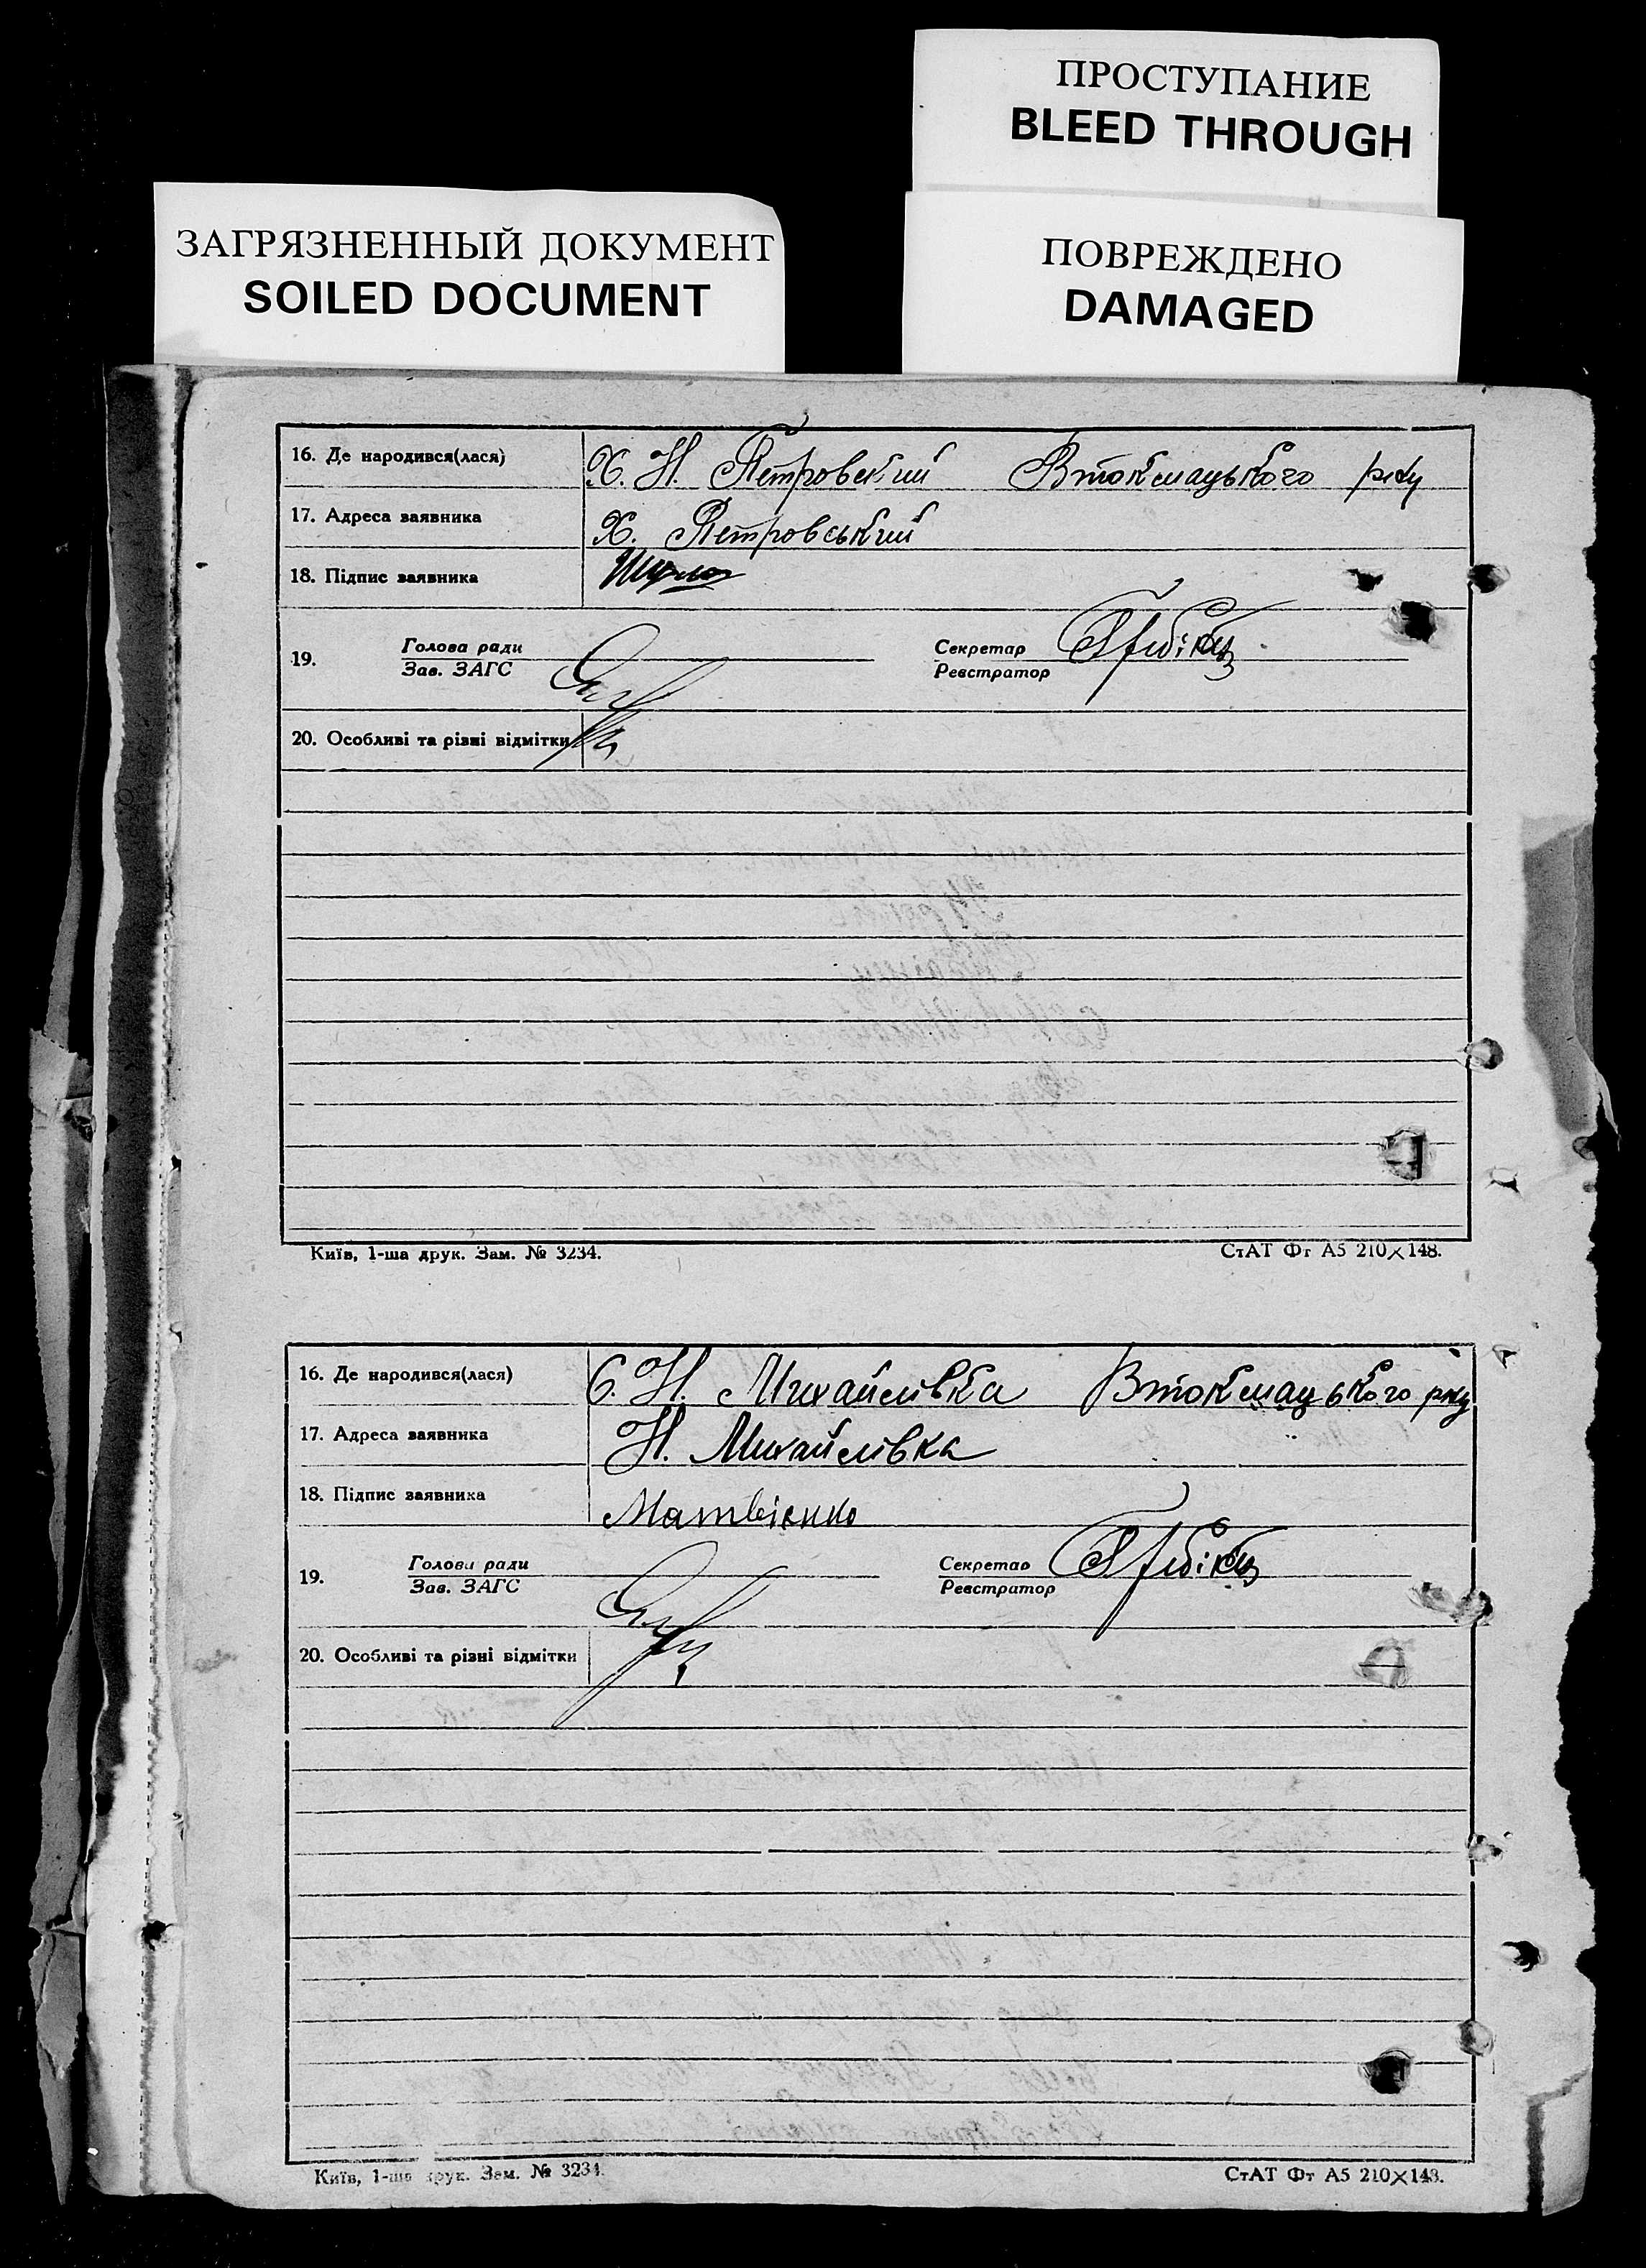 ПРОСТУПАНИЕ
BLEED THROUGH
ЗАГРЯЗНЕННЫЙ ДОКУМЕНТ
SOILED DOCUMENT
ПОВРЕЖДЕНО
DAMAGED
16. Де народився(лася) Х. Н. Петровский Втокмацького р-ку
17. Адреса заявника Х. Петровський
18. Підпис заявника
19. Голова ради Секретар
Зав. ЗАГС Реєстратор
20. Особливі та різні відмітки
Київ, 1-ша друк. Зам. № 3234. СтАТ Фт А5 210×148.
16. Де народився(лася) С. Н. Михайлівка Втокмацького р-ку
17. Адреса заявника Н. Михайлівка
18. Підпис заявника Матвієнко
19. Голова ради Секретар
Зав. ЗАГС Реєстратор
20. Особливі та різні відмітки
Київ, 1-ша друк. Зам. № 3234. СтАТ Фт А5 210×148.